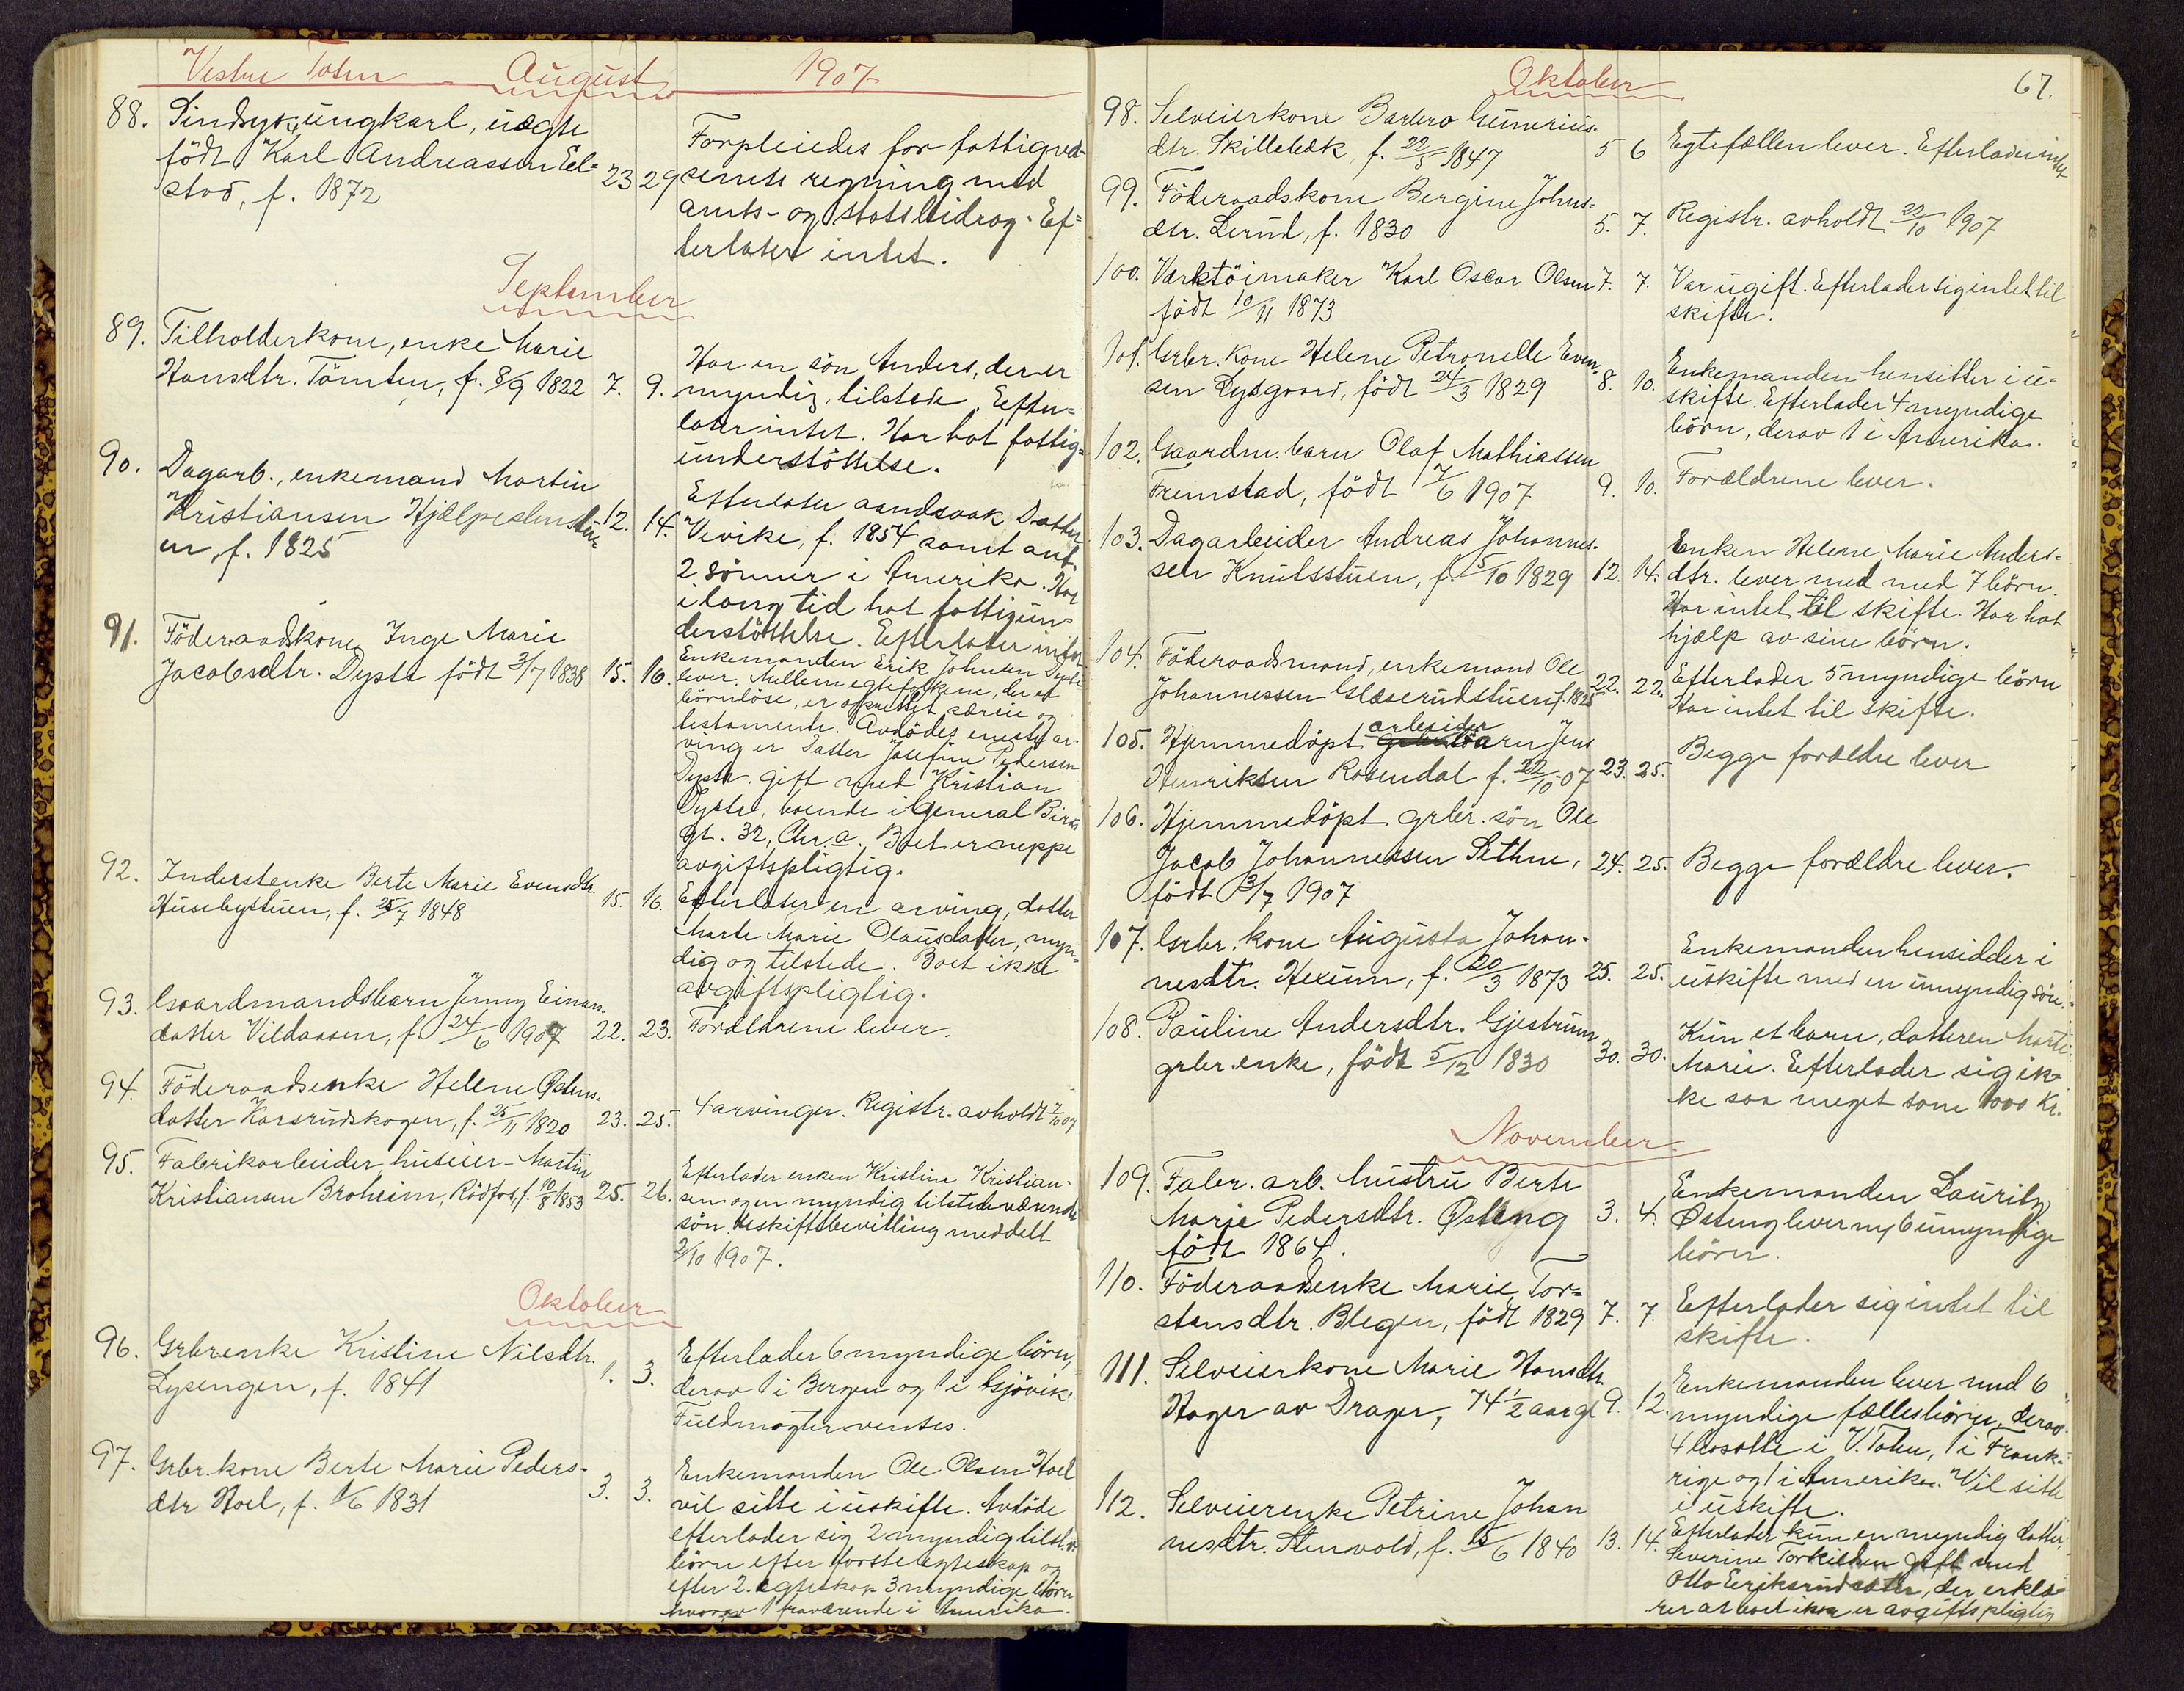 Vestre Toten - August 1907
88. Sindsyk, ungkarl, uegte
født Karl Andreassen Eel-
stad, f. 1872 23 29
Forpleiedes for fattigvæ-
senets regning med
amts- og statsbidrag. Ef-
terlater intet.
September
89. Tilholderkone, enke Marie
Hansdtr. Tömten, f. 8/9 1822 7. 9.
Har en sön Anders, der er
myndig, tilstede. Efter-
later intet. Har hat fattig-
understöttelse.
90. Dagarb., enkemand Martin
Kristiansen Hjælpeslusstu-
en, f. 1825 12. 14.
Efterlater aandssvak Datter
Vivike, f. 1854 samt ant.
2 sönner i Amerika. Har
i lang tid hat fattigun-
derstöttelse. Efterlater intet
91. Föderaadskone Inge Marie
Jacobsdtr. Dyste födt 3/7 1838 15. 16.
Enkemanden Erik Johnsen Dyste
lever. Mellem egtefolkene, der er
börnlöse, er oprettet særeie og
testamente. Avdödes eneste ar-
ving er Datter Josefine Pedersen
Dyste gift med Kristian
Dyste, boende i General Birks
gt. 32, Chr.a. Boet er neppe
avgiftspligtig.
92. Inderstenke Berte Marie Evensdtr.
Husebystuen, f. 25/7 1848 15. 16.
Efterlater en arving, datter
Marte Marie Olausdatter, myn-
dig og tilstede. Boet ikke
avgiftspligtig.
93. Gaardmandsbarn Jenny Einars-
datter Vildaasen, f. 24/6 1907 22. 23.
Forældrene lever.
94. Föderaadsenke Helene Østens-
datter Karsrudskogen, f. 25/11 1820 23. 25.
4 arvinger. Registr. avholdt 7/10 07
95. Fabrikarbeider, huseier - Martin
Kristiansen Broheim, Rödfos, f. 10/8 1853 25. 26.
Efterlader enken Kristine Kristian-
sen og en myndig tilstedeværende
sön. Uskiftebevilling meddelt
2/10 1907.
Oktober
96. Grbrenke Kristine Nilsdtr.
Lysengen, f. 1841 1. 3.
Efterlader 6 myndige börn,
derav 1 i Bergen og 1 i Gjövik.
Fuldmagter ventes.
97. Grbr. kone Berte Marie Peders-
dtr Hoel, f. 1/6 1831 3. 3.
Enkemanden Ole Olsen Hoel
vil sitte i uskifte. Avdöde
efterlader sig 2 myndig tilst.v.
börn efter første egteskap og
efter 2. egteskap 3 myndige börn
hvorav 1 fraværende i Amerika.
Oktober 67.
98. Selveierkone Barbro Gunerius-
dtr. Skillebæk, f. 22/5 1847 5 6
Egtefællen lever. Efterlader intet
99. Föderaadskone Bergine Johns-
dtr. Lerud, f. 1830 5. 7.
Registr. avholdt 22/10 1907
100. Værktöimaker Karl Oscar Olsen 7. 7.
födt 10/11 1873
Var ugift. Efterlader sig intet til
skifte.
101. Grbr. kone Helene Petronelle Even-
sen Lysgaard, födt 24/3 1829 8. 10.
Enkemanden hensitter i u-
skifte. Efterlader 4 myndige
börn, derav 1 i Amerika.
102. Gaardm. barn Olaf Mathiassen
Fremstad, födt 7/6 1907 9. 10.
Forældrene lever.
103. Dagarbeider Andreas Johannes-
sen Knutsstuen, f. 5/10 1829 12. 14.
Enken Helene Marie Anders-
dtr. lever med med 7 börn.
Har intet til skifte. Har hat
hjælp av sine börn.
104. Föderaadsmand, enkemand Ole
Johannessen Glæserudstuen f. 1825 22. 22.
Efterlader 5 myndige börn
Har intet til skifte.
105. Hjemmedöpt arbeider barn Jens
Henriksen Rosendal f. 22/10-07 23. 25.
Begge forældre lever
106. Hjemmedöpt grbr. sön Ole
Jacob Johannessen Sethne, 24. 25.
födt 3/7 1907
Begge forældre lever.
107. Grbr. kone Augusta Johan-
nesdtr. Hexum, f. 20/3 1873 25. 25.
Enkemanden hensidder i
uskifte med en umyndig sön.
108. Pauline Andersdtr. Gjestrum
grbr. enke, födt 5/12 1830 30. 30.
Kun et barn, datteren Marte
Marie. Efterlader sig ik-
ke saa meget som 1000 Kr.
November
109. Fabr. arb. hustru Berte
Marie Pedersdtr. Østeng 3. 4.
födt 1864.
Enkemanden Lauritz
Østeng lever m/ 6 umyndige
börn.
110. Föderaadsenke Marie Tor-
stensdtr. Blegen, födt 1829 7. 7.
Efterlader sig intet til
skifte.
111. Selveierkone Marie Hansdtr.
Hager av Drager, 74 1/2 aar gl 9. 12.
Enkemanden lever med 6
myndige fællesbörn, derav
4 bosatte i V. Toten, 1 i Frank-
rige og 1 i Amerika. Vil sitte
i uskifte.
112. Selveierenke Petrine Johan
nesdtr. Stenvold, f. 15/6 1840 13. 14.
Efterlader kun en myndig datter,
Severine Torkildsen gift med
Otto Eriksrudsæter, der erklæ-
rer at boet ikke er avgiftspligtig